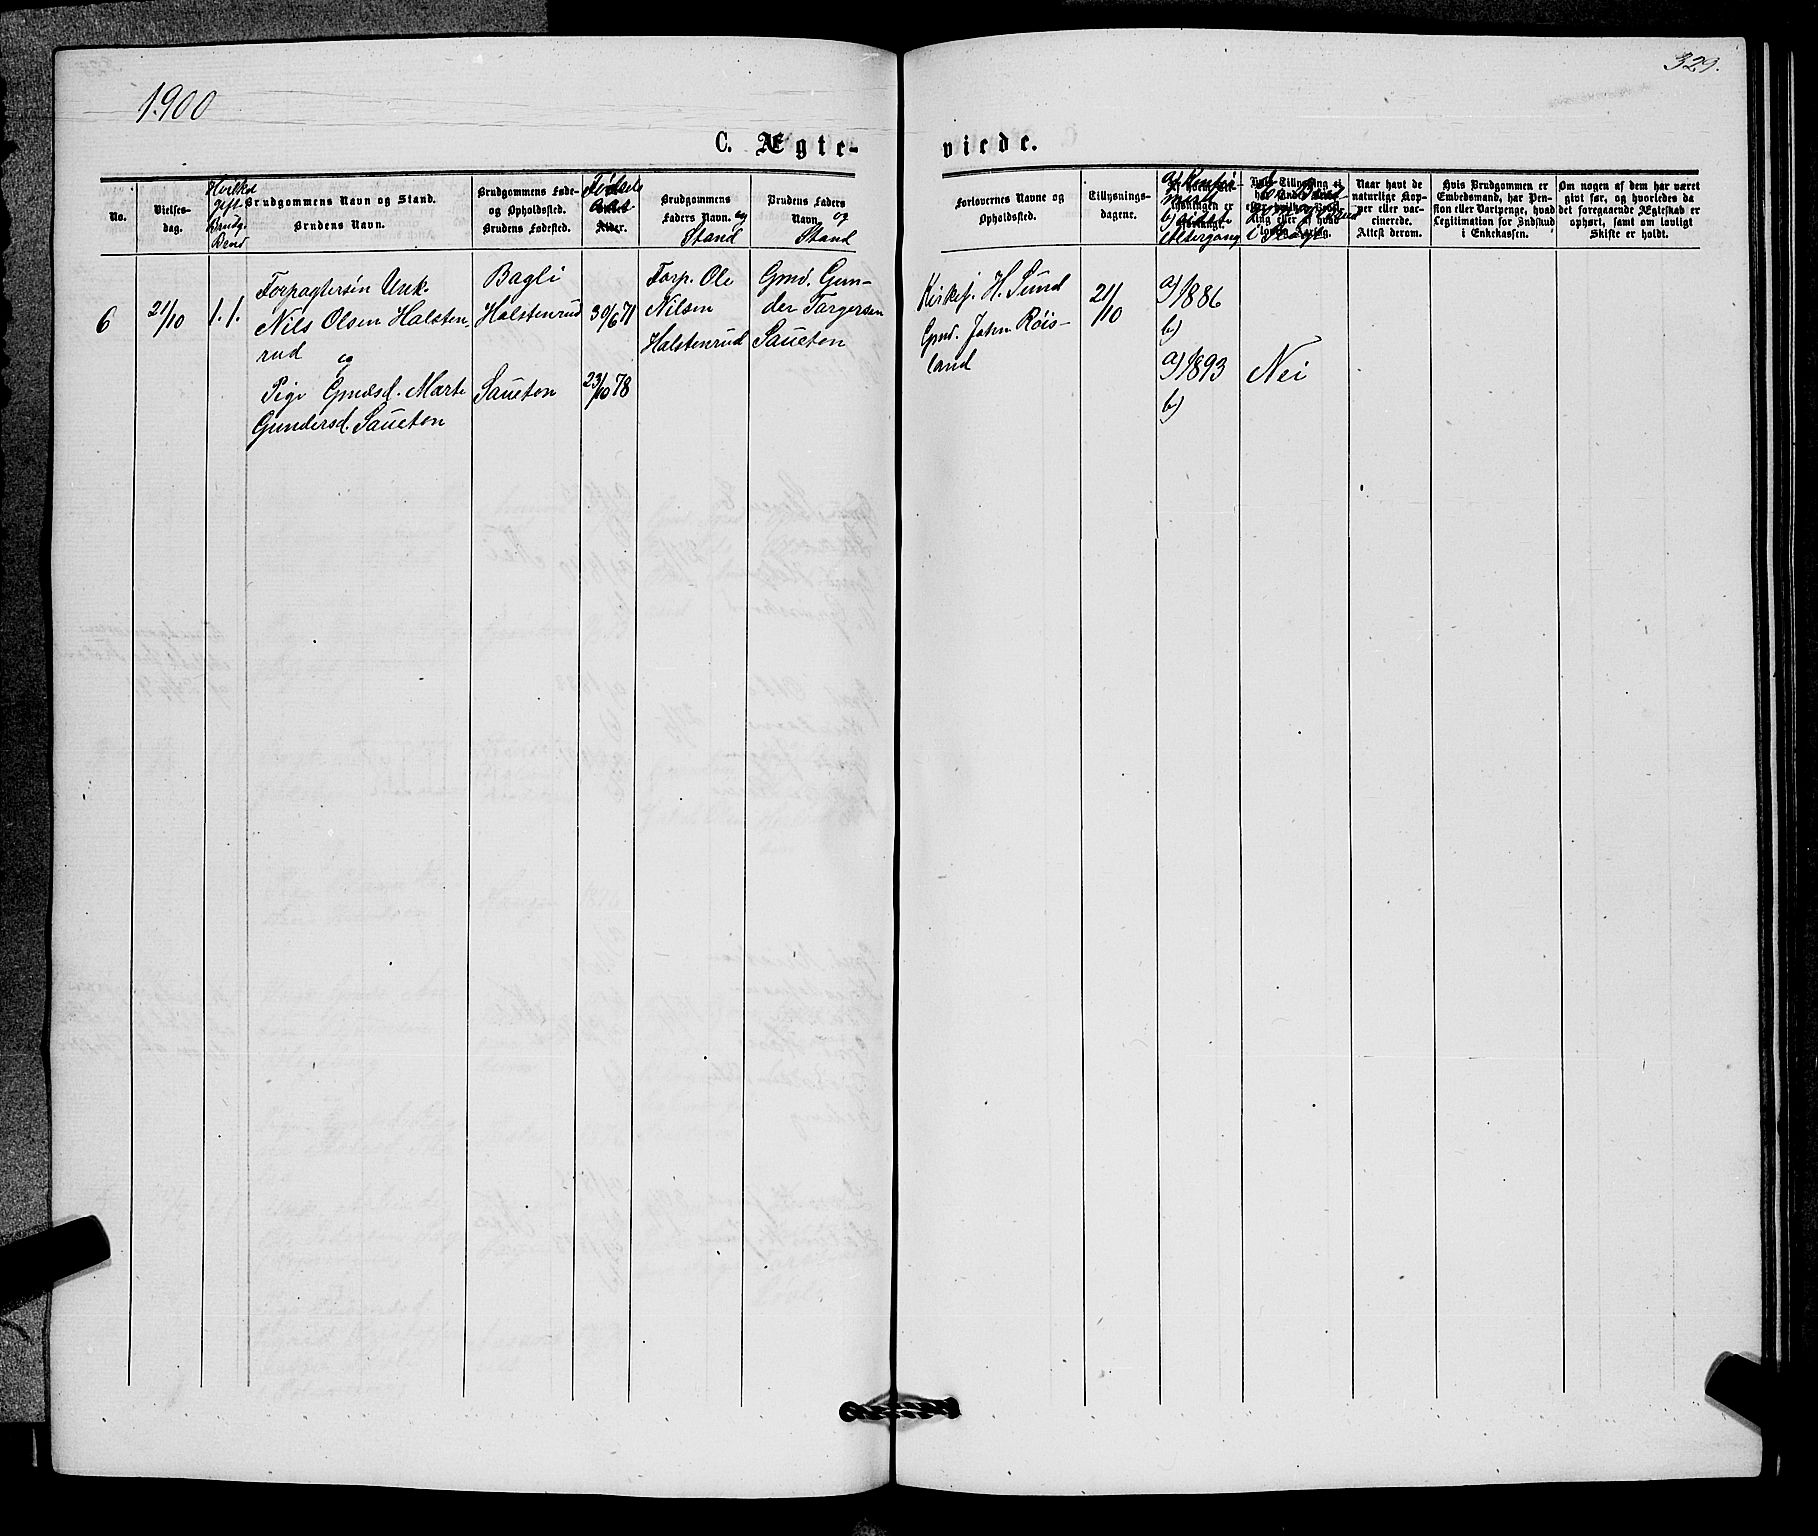 329.
1900
C. Ægte-
viede.
No.
Vielses-
dag.
Hvilket
Gift.
Brudg.
Brud
Brudgommens Navn og Stand.
Brudens Navn.
Brudgommens Føde-
og Opholdssted.
Brudens Fødested.
Fødsels
Alder.
Brudgommens
Faders Navn. og
Stand
Brudens Faders
Navn. og
Stand
Forlovernes Navne og
Opholdssted.
Tillysnings-
dagene.
Naar havt de
naturlige Kop-
per eller vac-
cinerede.
Attest derom.
Hvis Brudgommen er
Embedsmand, har Pen-
sion eller Vartpenge, hvad
Legitimation for Indskud
i Enkekassen.
Om nogen af dem har været
gift før, og hvorledes da
det foregaaende Ægteskab er
ophørt, samt om lovligt
Skifte er holdt.
6
21/10
1.1.
Forpagtersøn Unk.
Nils Olsen Halsten-
rud og
Pige Gmdsd. Marte
Gundersd. Saueton
Bagli
Halstenrud
Saueton
30/6 71
23/10 78
Forp. Ole
Nilsen
Halstenrud
Gmd. Gun-
der Targersen
Saueton
Kirkes. H. Sund
Gmd. John Röis-
land
21/10
a) 1886
b)
a) 1893
b)
Nei